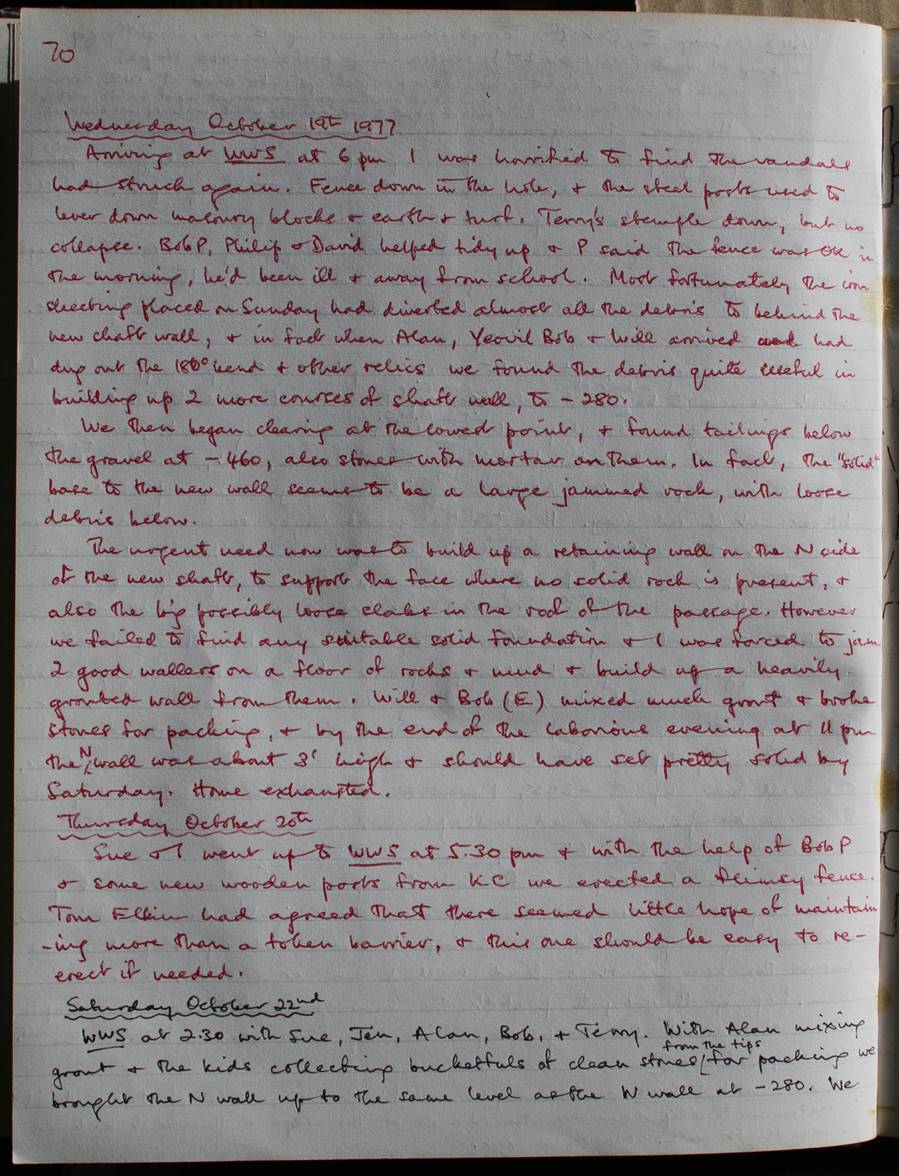 70
Wednesday October 19th 1977
Arriving at WWS at 6 pm I was horrified to find the vandals
had struck again. Fence down in the hole, + the steel posts used to
lever down masonry blocks + earth + turf. Terry's stemple down, but no
collapse. Bob P, Philip + David helped tidy up + P said the fence was OK in
the morning, he'd been ill + away from school. Most fortunately the iron
sheeting placed on Sunday had diverted almost all the debris to behind the
new shaft wall, + in fact when Alan, Yeovil Bob + Will arrived and had
dug out the 180° bend + other relics we found the debris quite useful in
building up 2 more courses of shaft wall, to -280.
We then began clearing at the lowest point, + found tailings below
the gravel at -460, also stones with mortar on them. In fact, the "solid"
base to the new wall seems to be a large jammed rock, with loose
debris below.
The urgent need now was to build up a retaining wall on the N side
of the new shaft, to support the face where no solid rock is present, +
also the big possibly loose slabs in the roof of the passage. However
we failed to find any suitable solid foundation + I was forced to jam
2 good wallers on a floor of rocks + mud + build up a heavily
grouted wall from them. Will + Bob (E) mixed much grout + broke
stones for packing, + by the end of the laborious evening at 11 pm
the N wall was about 3' high + should have set pretty solid by
Saturday. Home exhausted.
Thursday October 20th
Sue + I went up to WWS at 5.30 pm + with the help of Bob P
+ some new wooden posts from KC we erected a flimsy fence.
Tom Elkin had agreed that there seemed little hope of maintain
-ing more than a token barrier, + this one should be easy to re-
erect if needed.
Saturday October 22nd
WWS at 2.30 with Sue, Jen, Alan, Bob, + Terry. With Alan mixing
grout + the kids collecting bucketfuls of clean stones from the tips for packing we
brought the N wall up to the same level as the W wall at -280. We